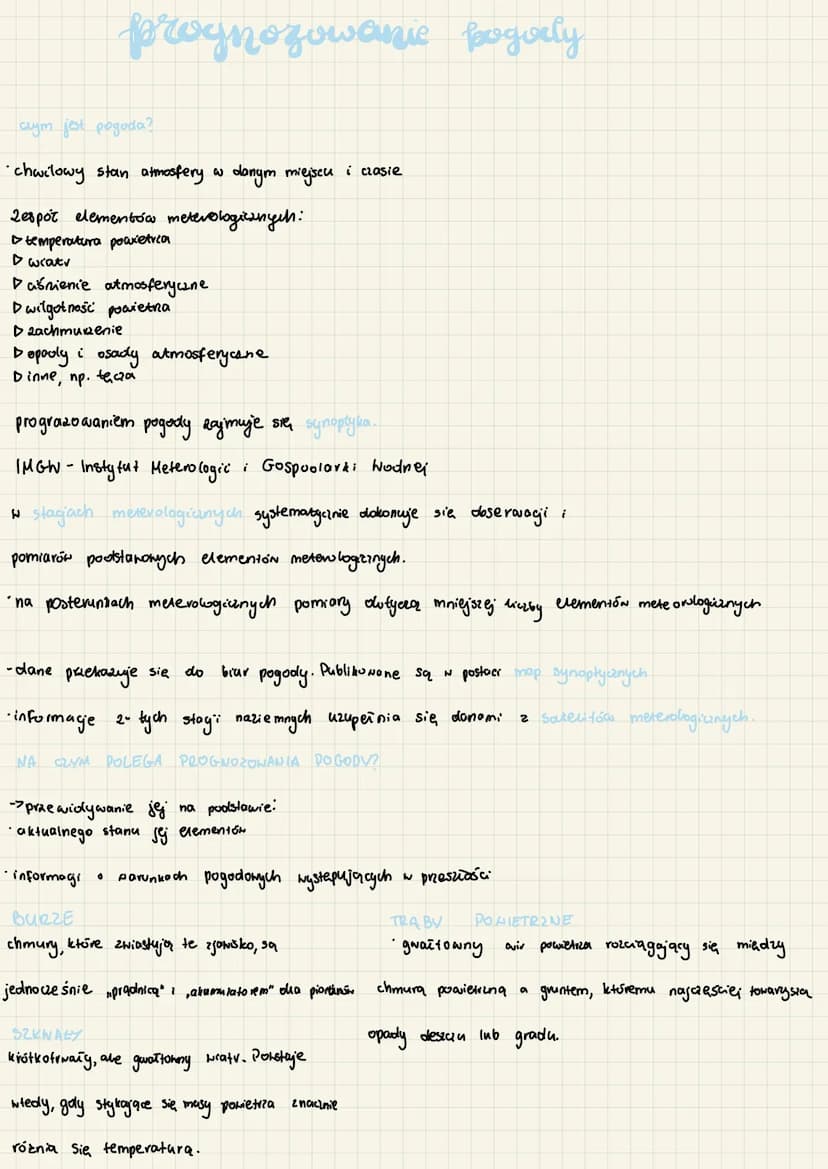 prognozowanie pogody
czym jest pogoda?
· chwilowy stan atmosfery w danym miejscu i czasie
Zespół elementów meterologicznych:
▷ temperatura powietrza
▷ wiatr
▷ ciśnienie atmosferyczne
▷ wilgotność powietrza
▷ zachmurzenie
▷ opady i osady atmosferyczne
▷ inne, np. tęcza
prognozowaniem pogody zajmuje się synoptyka.
IMGW - Instytut Meterologii i Gospodarki Wodnej
W stacjach meterologicznych systematycznie dokonuje się obserwacji i
pomiarów podstawowych elementów meterologicznych.
· na posterunkach meterologicznych pomiary dotyczą mniejszej liczby elementów meteorologicznych
- dane przekazuje się do biur pogody. Publikowane są w postaci map synoptycznych
· informacje z tych stacji naziemnych uzupełnia się danymi z satelitów meterologicznych.
NA CZYM POLEGA PROGNOZOWANIA POGODY?
-> przewidywanie jej na podstawie:
· aktualnego stanu jej elementów
· informacji o warunkach pogodowych występujących w przeszłości
BURZE
chmury, które zwiastują te zjawisko, są
jednocześnie „prądnicą" i „akumulatorem" dla piorunów
SZKWAŁY
krótkotrwały, ale gwałtowny wiatr. Powstaje
wtedy, gdy stykające się masy powietrza znacznie
różnią się temperaturą.
TRĄBY POWIETRZNE
· gwałtowny wir powietrza rozciągający się między
chmurą powietrzną a gruntem, któremu najczęściej towarzyszą
opady deszczu lub gradu.